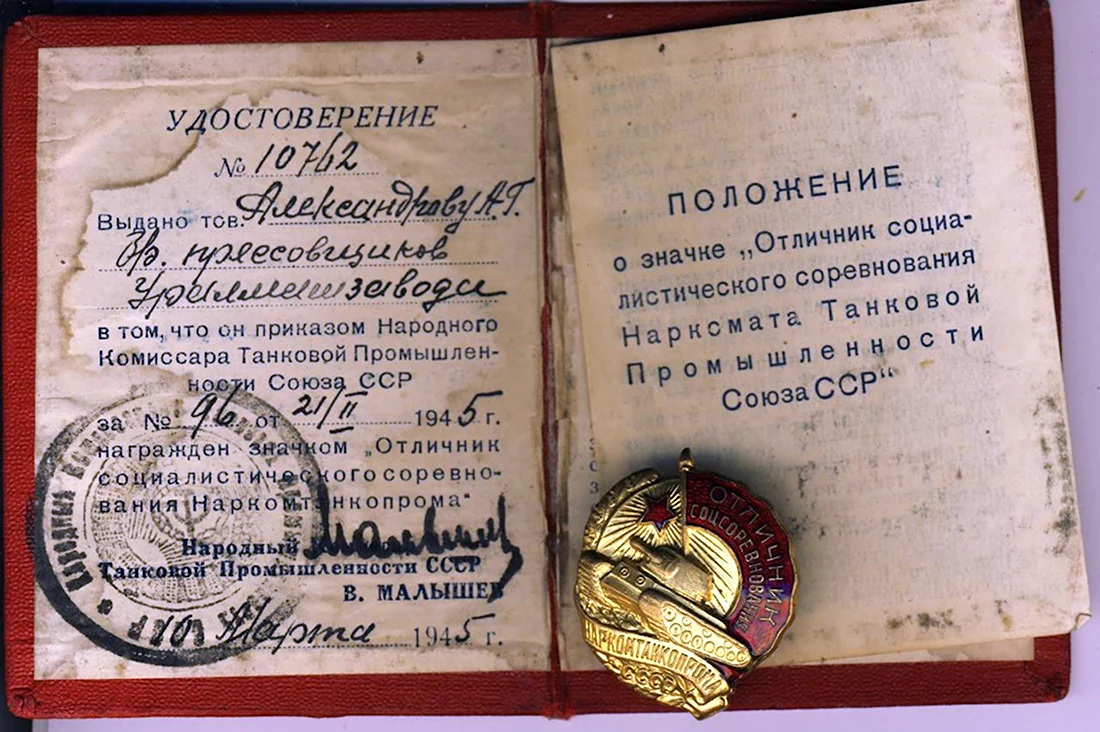 УДОСТОВЕРЕНИЕ
№ 10762
Выдано тов. Александрову А.Г.
бр. прессовщиков
Уралмашзавода
в том, что он приказом Народного
Комиссара Танковой Промышлен-
ности Союза ССР
за № 96 от 21/II 1945 г.
награжден значком „Отличник
социалистического соревно-
вания Наркомтанкопрома“
Народный
Танковой Промышленности СССР
В. МАЛЫШЕВ
10 Марта 1945 г.
Народный
ПОЛОЖЕНИЕ
о значке „Отличник социа-
листического соревнования
Наркомата Танковой
Промышленности
Союза ССР“
ОТЛИЧНИК
СОЦСОРЕВНОВАНИЯ
НАРКОМТАНКОПРОМА
СССР